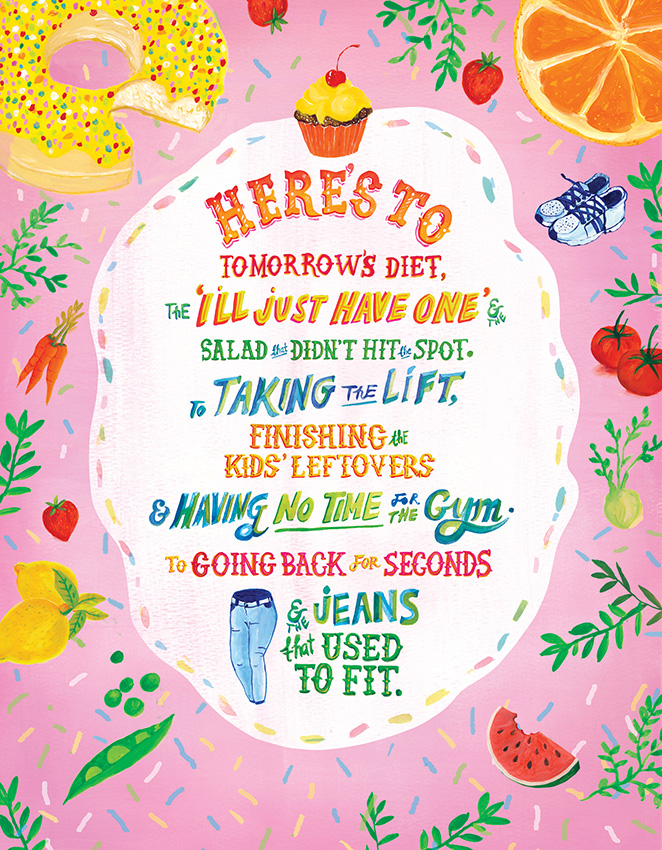 HERE'S TO
TOMORROW'S DIET,
THE 'I'LL JUST HAVE ONE' & THE
SALAD that DIDN'T HIT the SPOT.
To TAKING THE LIFT,
FINISHING the
KIDS' LEFTOVERS
& HAVING NO TIME FOR THE Gym.
TO GOING BACK FOR SECONDS
& THE JEANS
that USED
TO FIT.